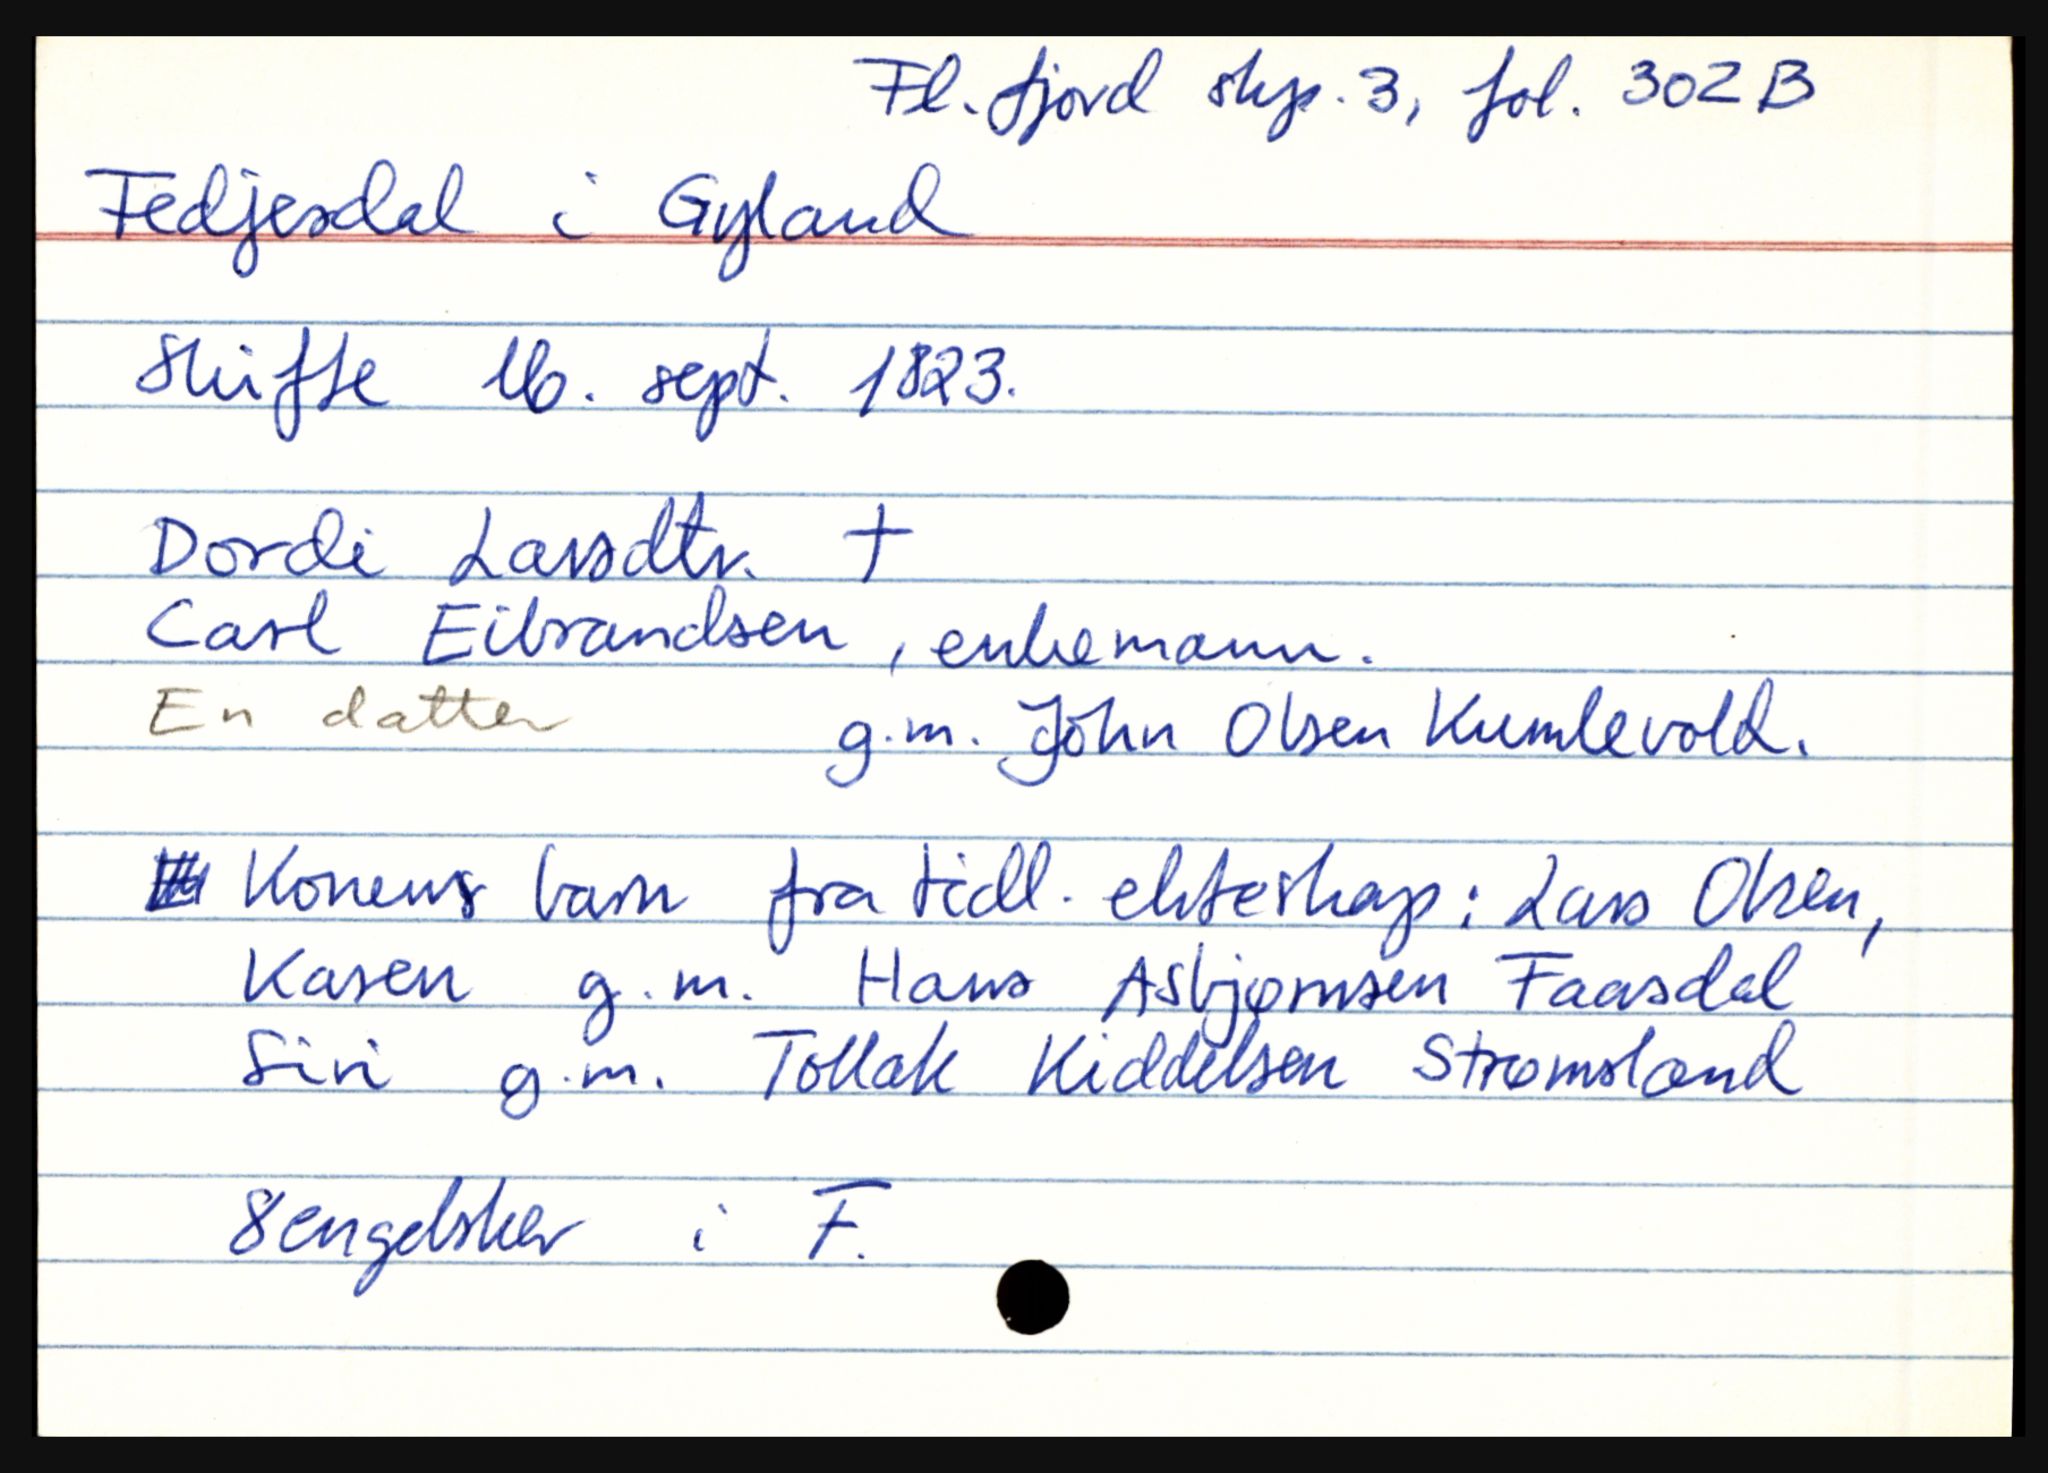 Fl.fjord skp. 3, fol. 302B
Fedjesdal i Gyland
Skifte 16. sept. 1823.
Dordi Larsdtr. †
Carl Eilrandsen, enkemann.
En datter g.m. John Olsen Kumlevold.
Konens barn fra tidl. ekteskap: Lars Olsen,
Karen g.m. Hans Asbjørnsen Faarsdal
Siri g.m. Tollak Kiddelsen Strømsland
Sengelsker i F.